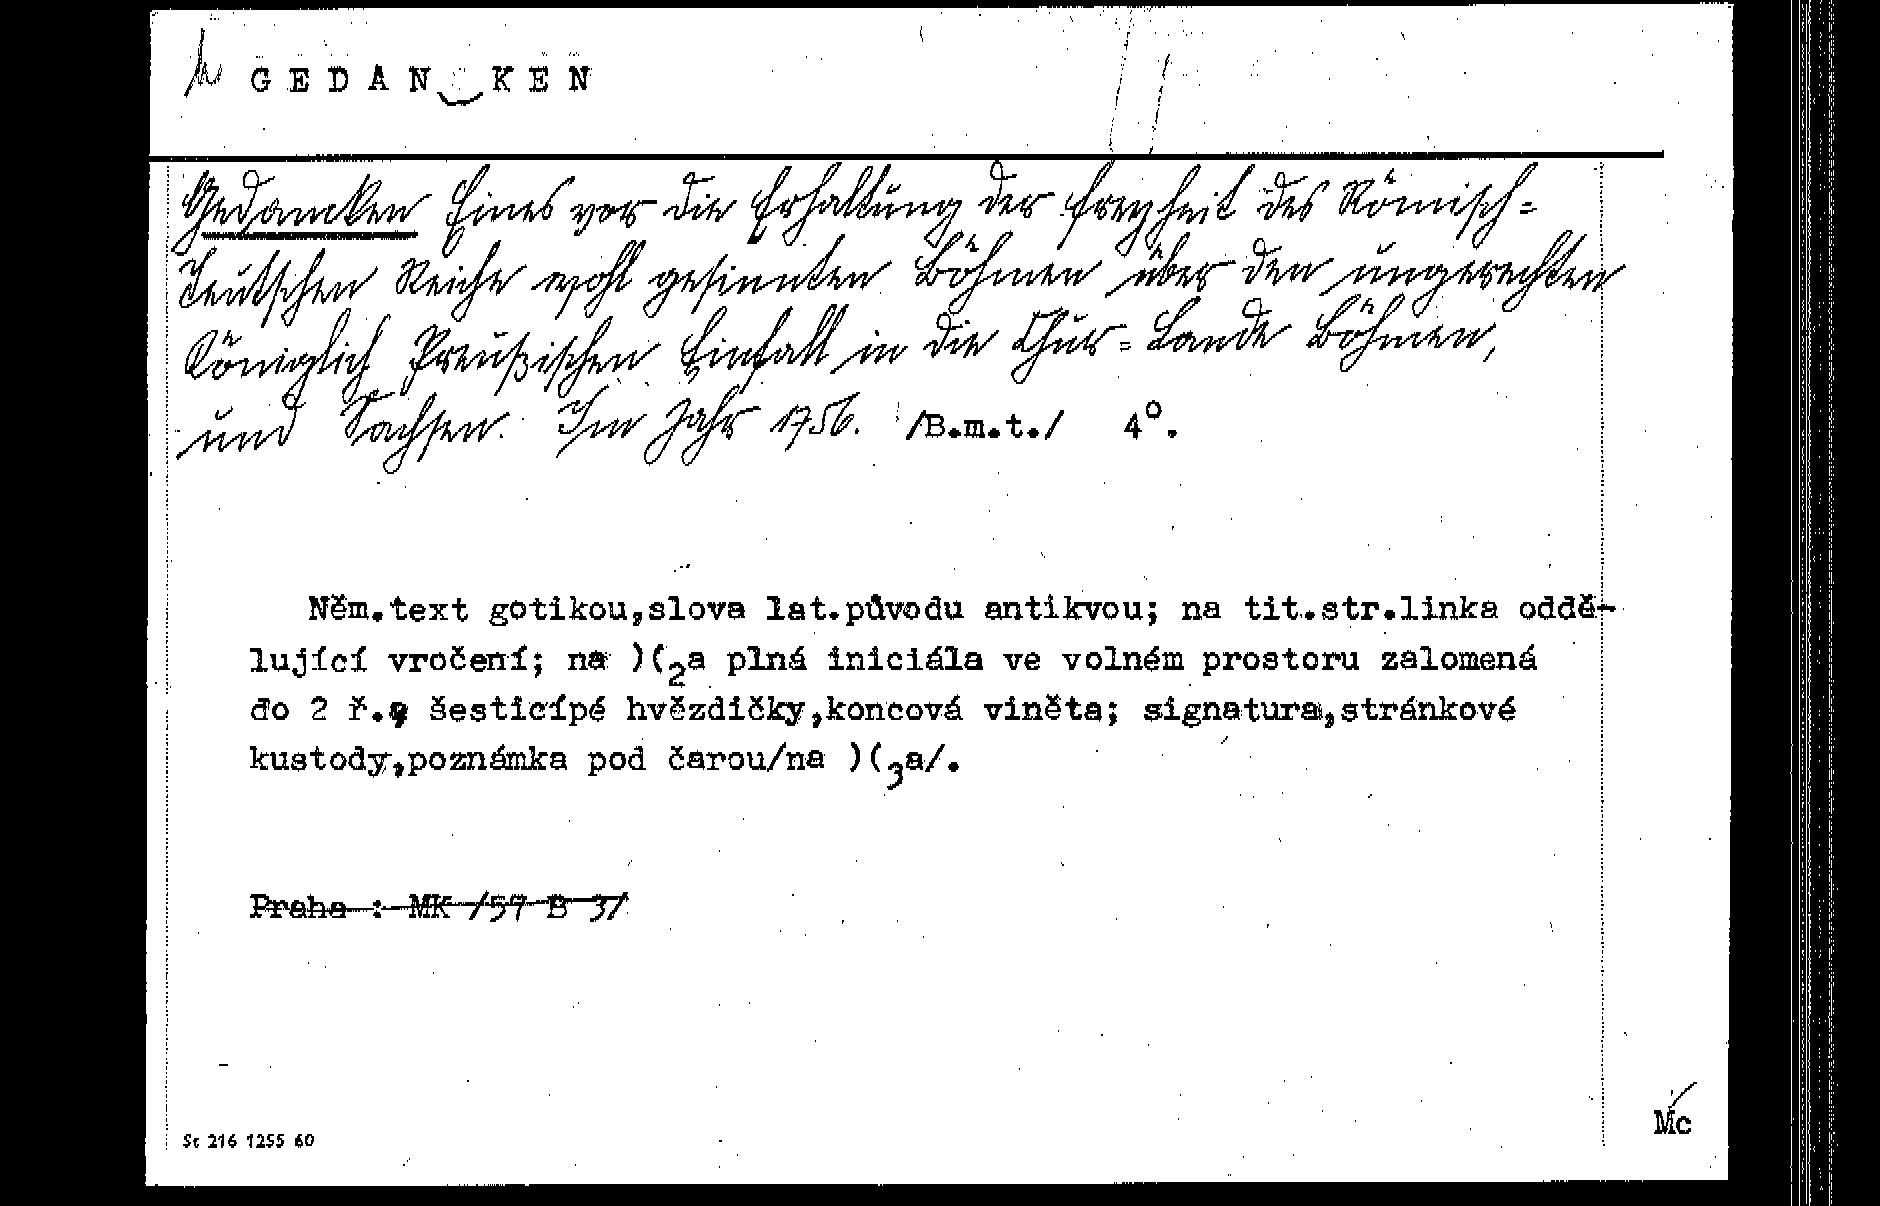 GEDANCKEN
Gedancken Eines vor die Erhaltung der Freyheit des Römisch=
Teutschen Reichs wohl gesinnten Böhmen über den ungerechten
Königlich Preußischen Einfall in die Chur=Lande Böhmen,
und Sachsen. Im Jahr 1756. /B.m.t./ 4°.
Něm.text gotikou,slova lat.původu antikvou; na tit.str.linka oddě-
lující vročení; na )(2a plná iniciála ve volném prostoru zalomená
do 2 ř., šesticípé hvězdičky,koncová viněta; signatura,stránkové
kustody,poznámka pod čarou/na )(3a/.
Praha : MK /57 B 3/
Mc
Sc 216 1255 60